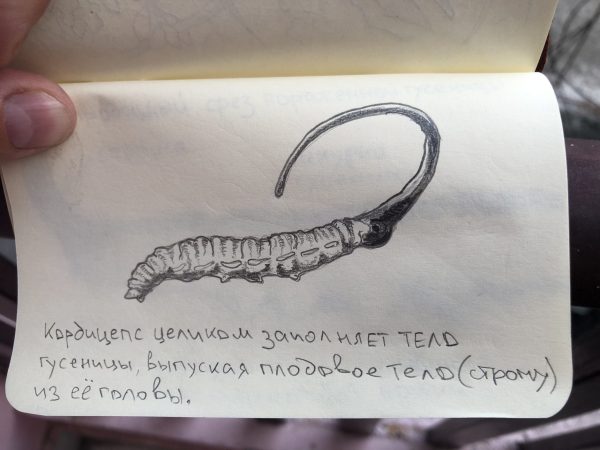 Кордицепс целиком заполняет тело
гусеницы, выпуская плодовое тело (строму)
из её головы.